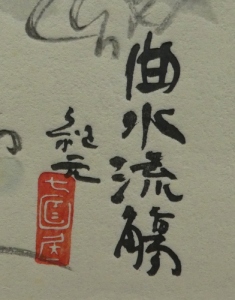 曲水流觴
紀元